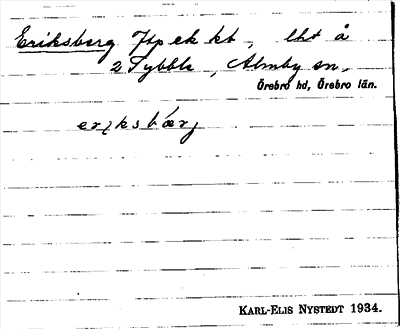 Eriksberg Jtp ek kt, lht å
2 Tybble, Almby sn,
Örebro hd, Örebro län.
erıksbærj
KARL-ELIS NYSTEDT 1934.